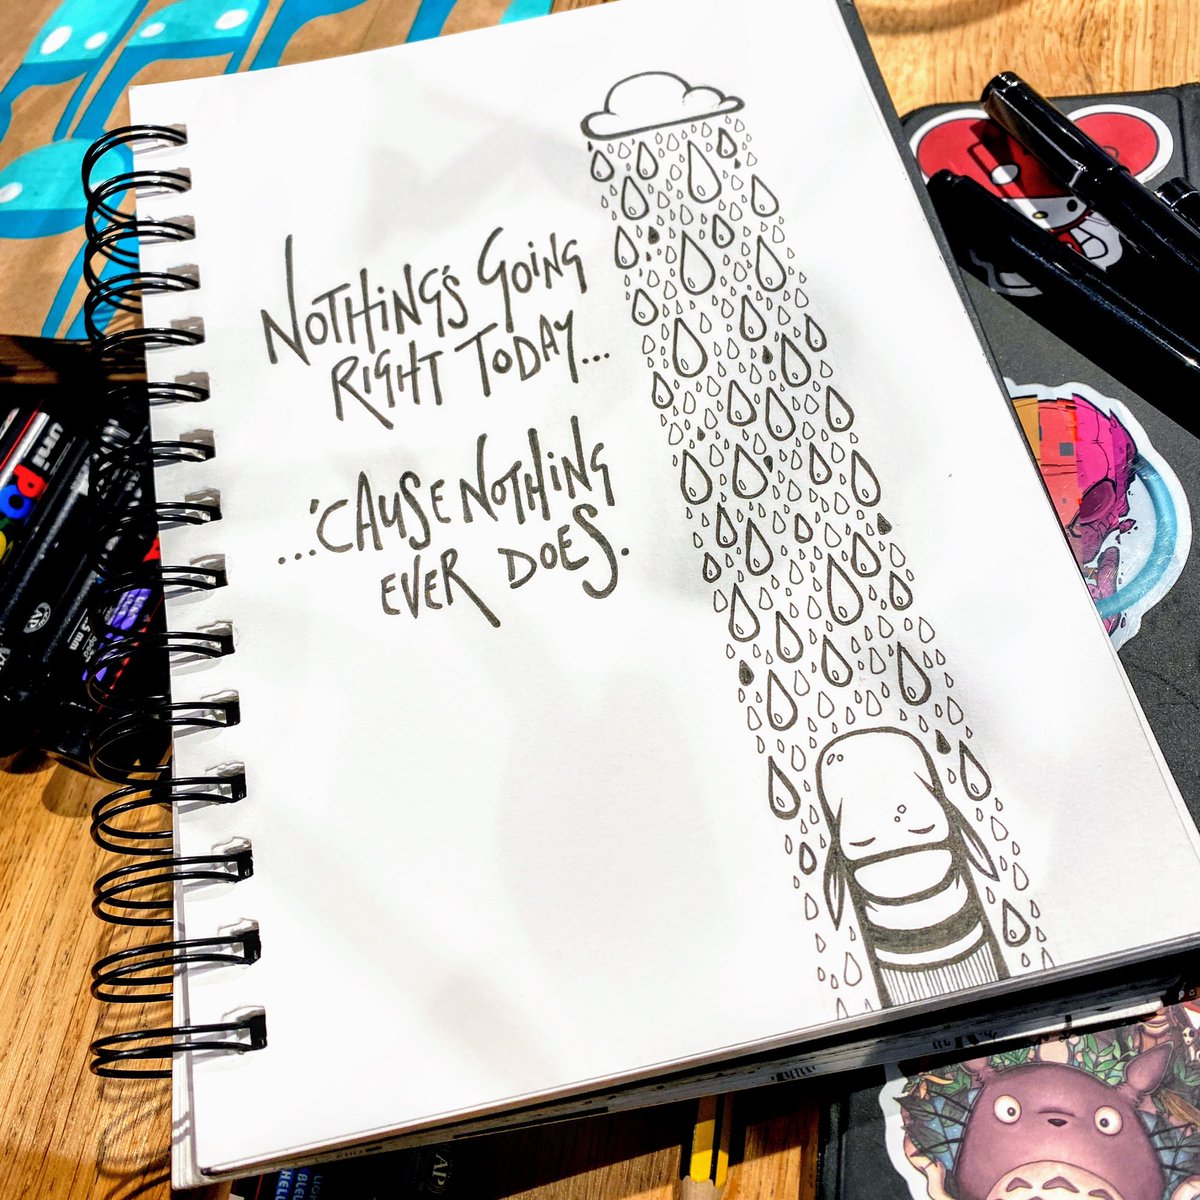 NOTHING'S GOING
RIGHT TODAY...
...'CAUSE NOTHING
EVER DOES.
uni